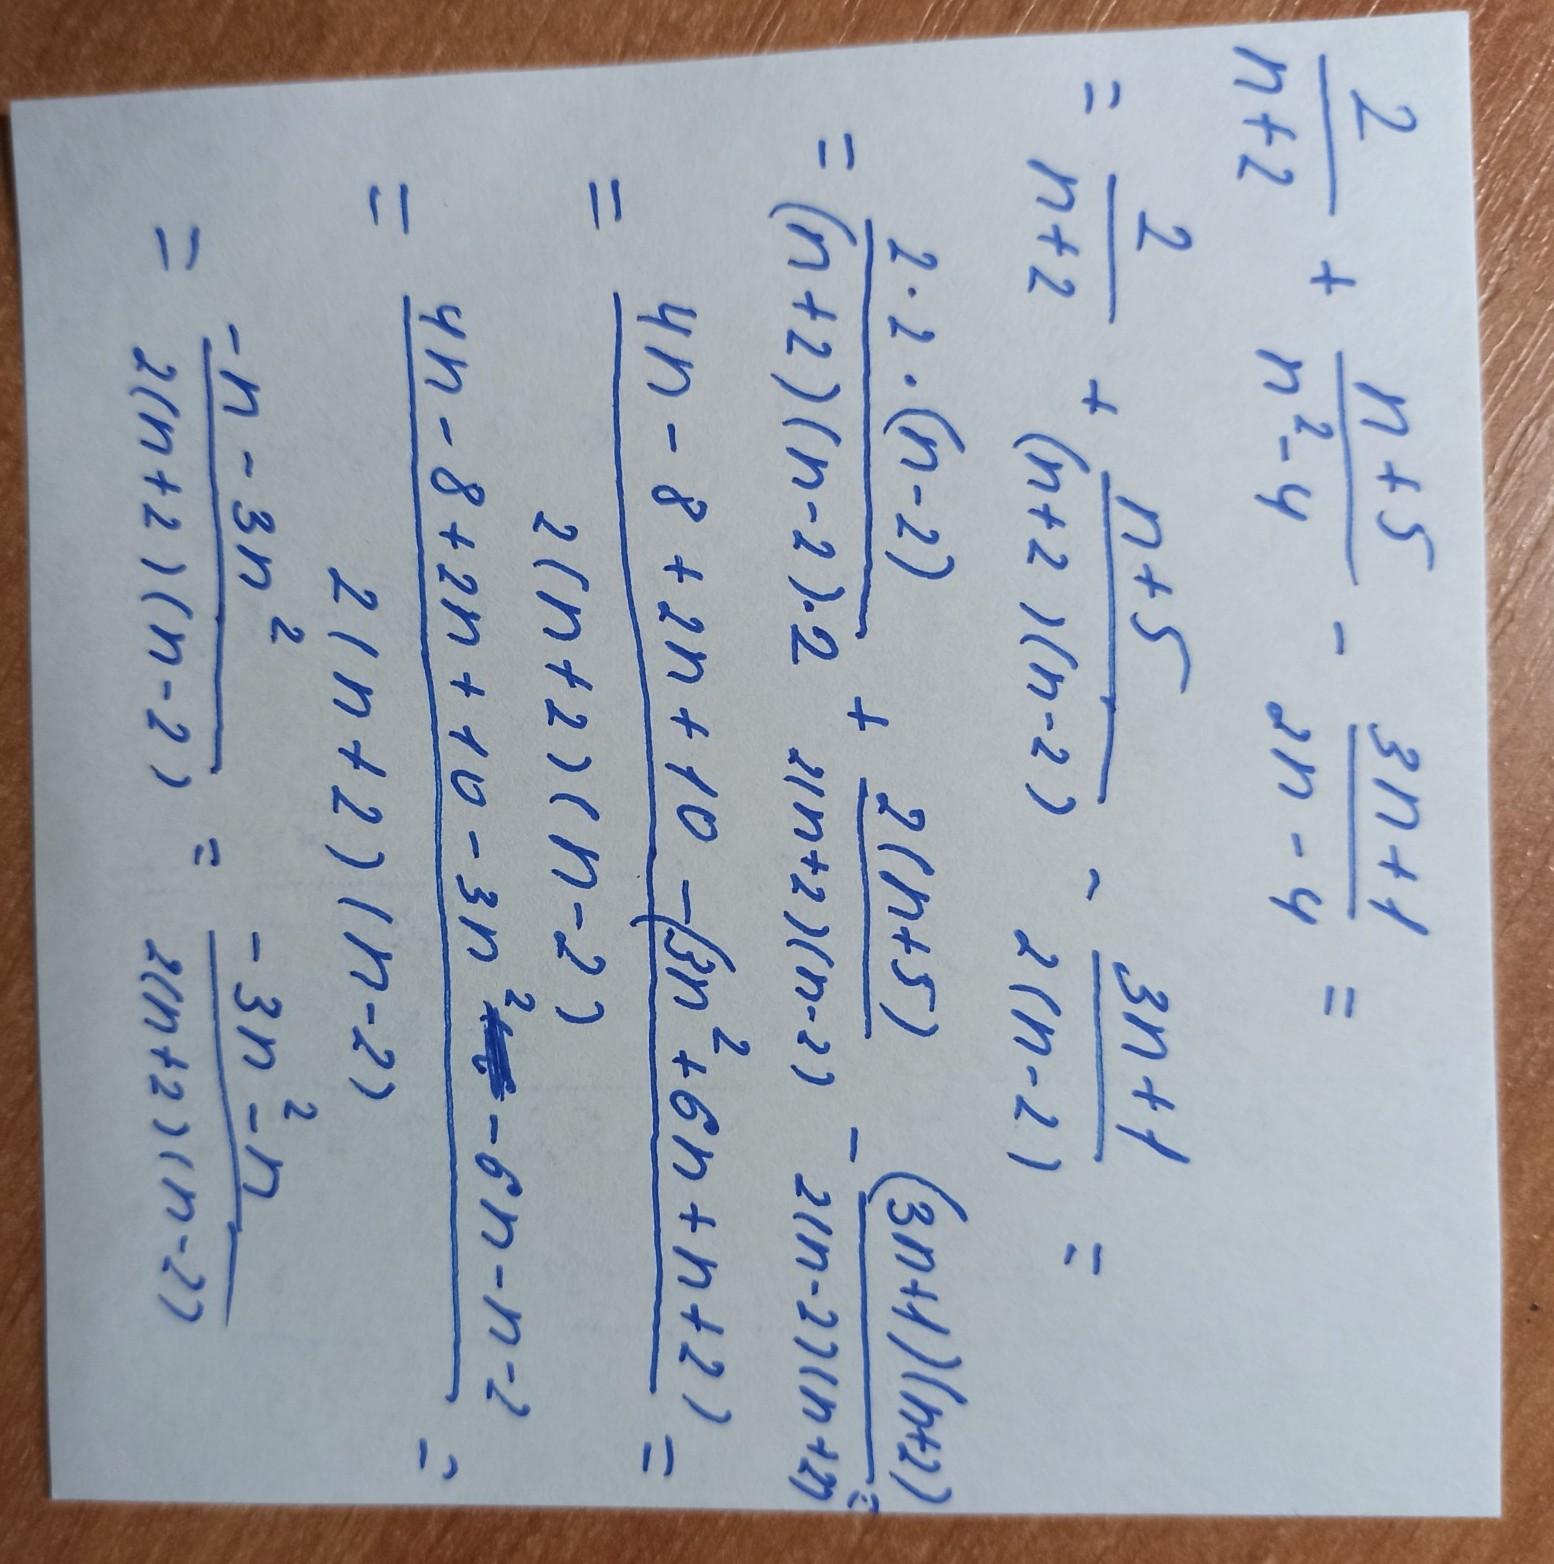 2/(n+2) + (n+5)/(n²-4) - (3n+1)/(2n-4) =
= 2/(n+2) + (n+5)/((n+2)(n-2)) - (3n+1)/(2(n-2)) =
= (2·2·(n-2))/((n+2)(n-2)·2) + (2(n+5))/(2(n+2)(n-2)) - ((3n+1)(n+2))/(2(n-2)(n+2)) =
= (4n-8+2n+10-(3n²+6n+n+2))/(2(n+2)(n-2)) =
= (4n-8+2n+10-3n²-6n-n-2)/(2(n+2)(n-2)) =
= (-n-3n²)/(2(n+2)(n-2)) = (-3n²-n)/(2(n+2)(n-2))